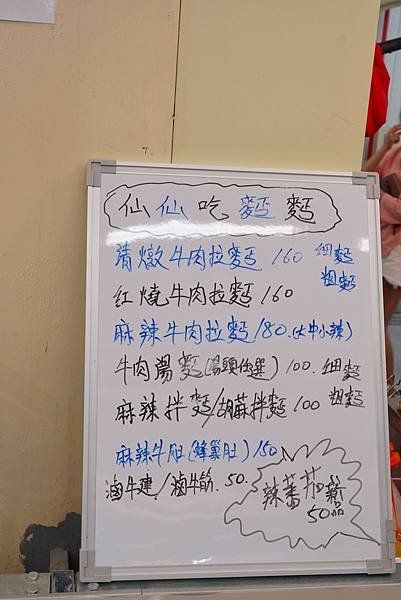 仙仙吃麵麵
清燉牛肉拉麵 160 細麵
粗麵
紅燒牛肉拉麵 160
麻辣牛肉拉麵 180.(大中小辣)
牛肉湯麵(湯頭任選) 100. 細麵
麻辣拌麵/胡麻拌麵 100 粗麵
麻辣牛肚(蜂巢肚) 150
滷牛建/滷牛筋. 50.
辣蕃茄
50